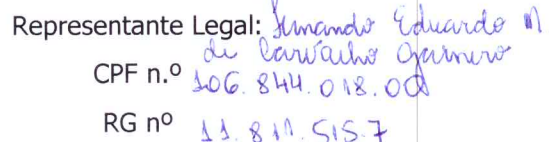 Representante Legal: Fernando Eduardo M
de Carvalho Garnero
CPF n.º 106.844.018.00
RG nº 11.811.515.7